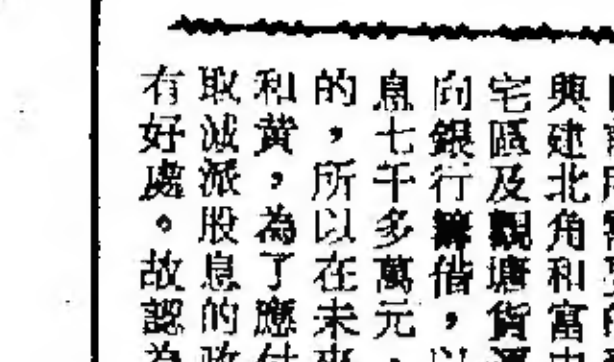 興建北角和富中
宅區及觀塘貨運
向銀行籌借，以
息七千多萬元，
的，所以在未來
和黃，為了應付
取減派股息的政
有好處。故認為